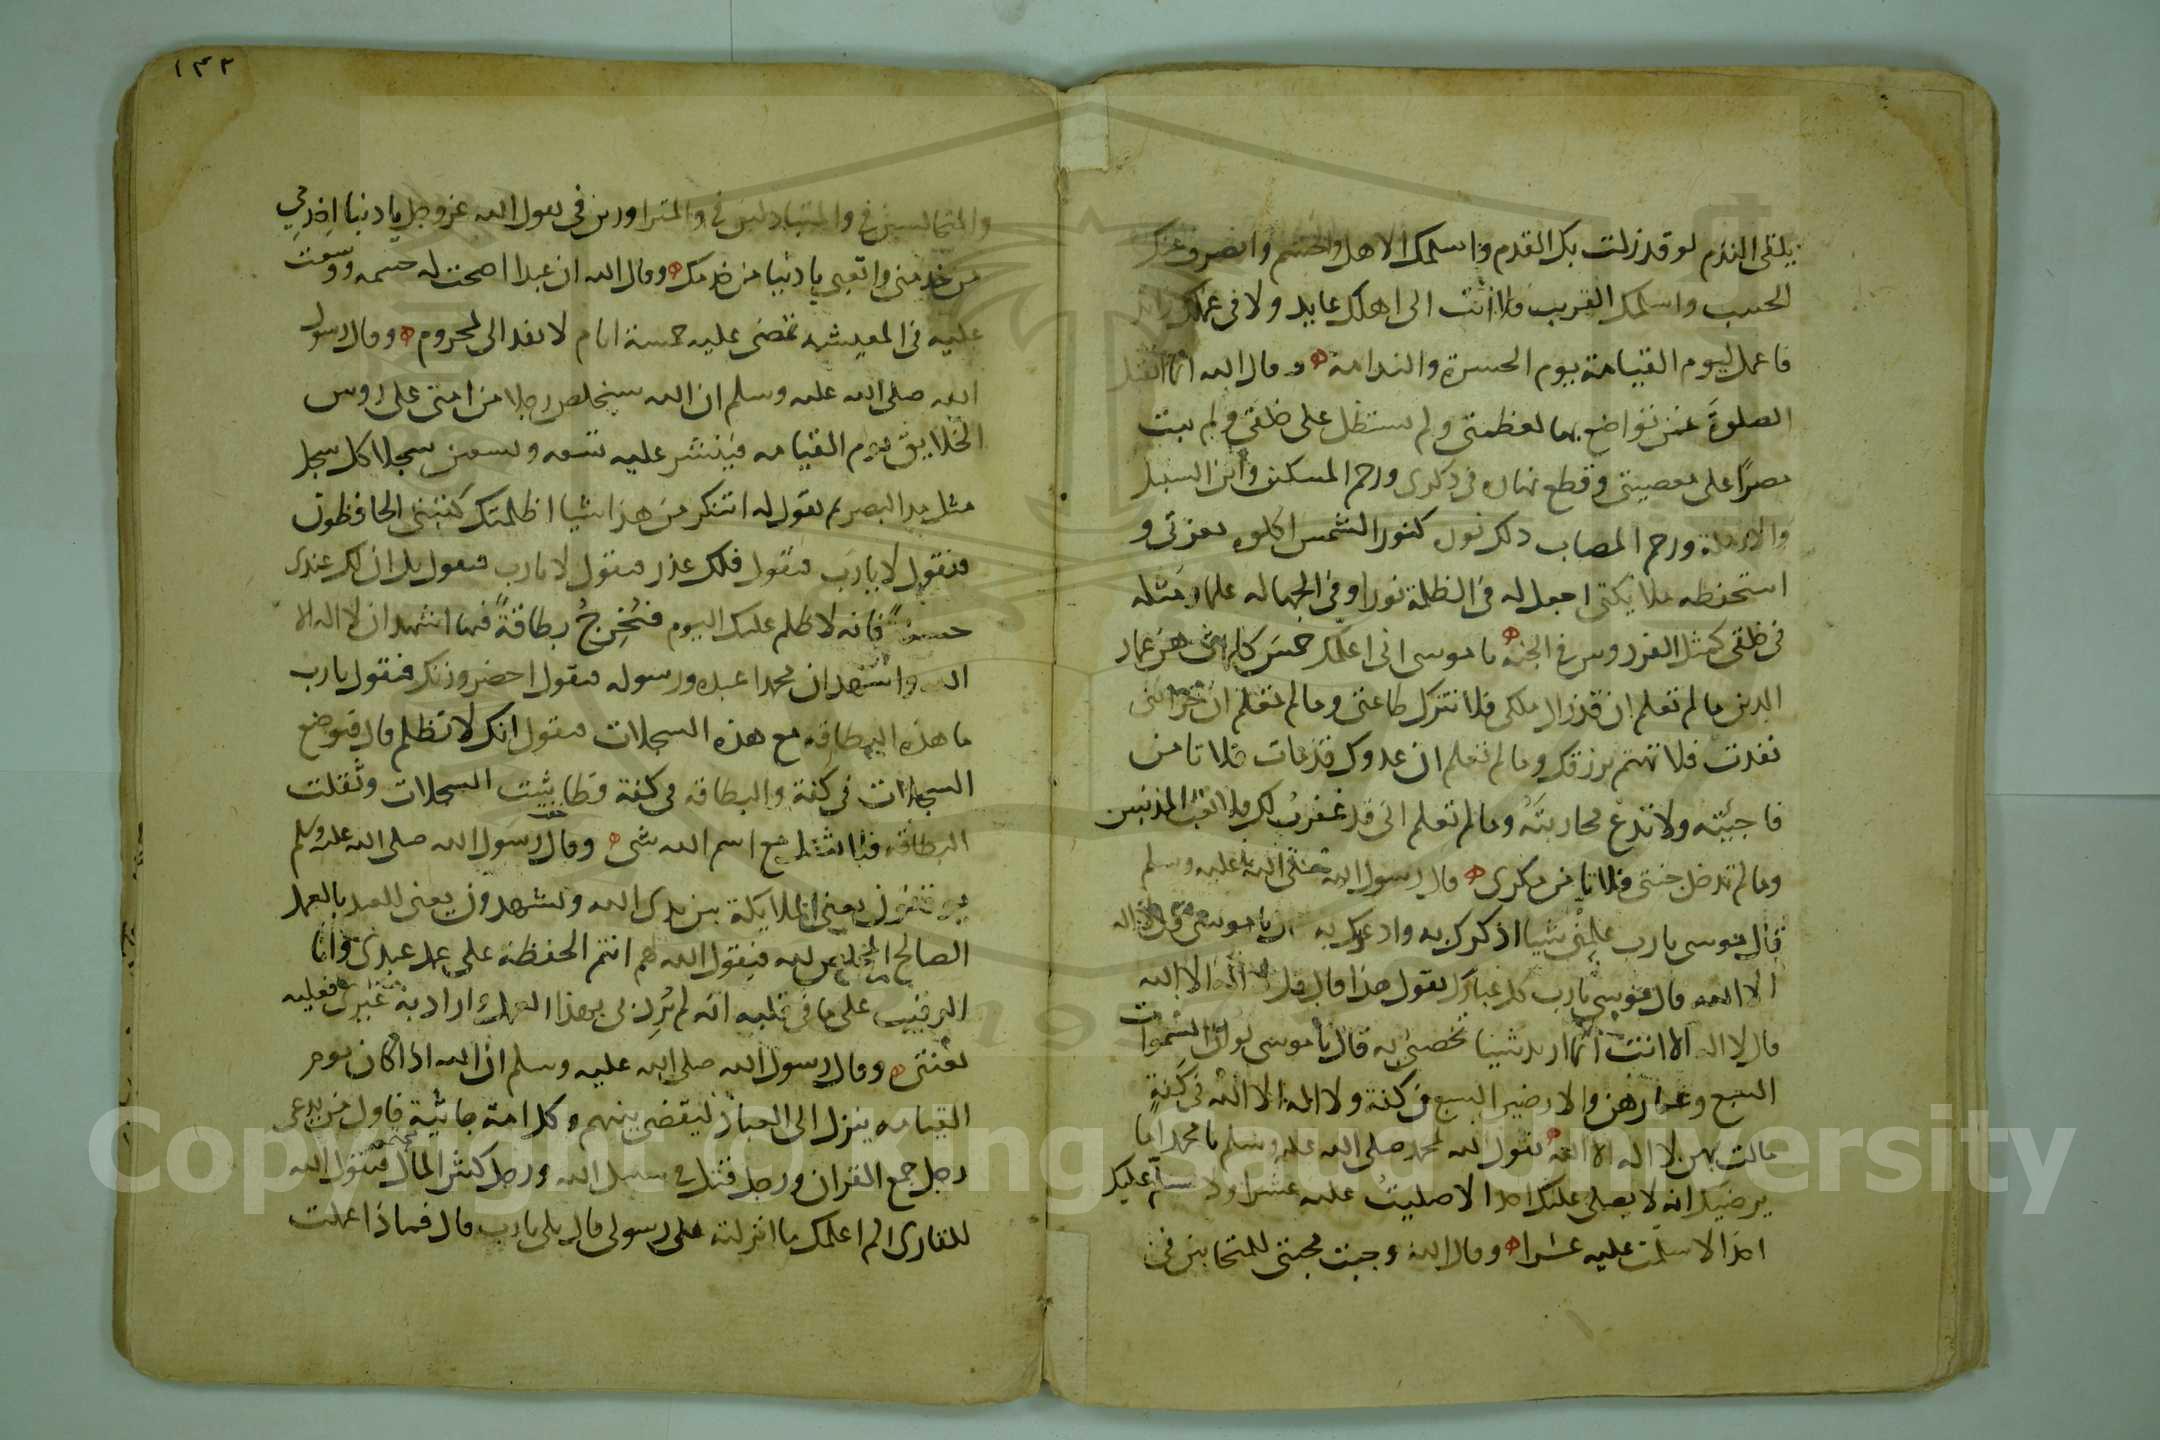 يلقى الندم لو قد زلت بك القدم واسلمك الاهل والحشم وانصرف عنك
الحبيب واسلمك القريب فلا انت الى اهلك عايد ولا فى عملك زايد
فاعمل ليوم القيامة يوم الحسرة والندامة وقال الله انما اتقبل
الصلوة ممن تواضع بها لعظمتى ولم يستطل على خلقى ولم يبت
مصرا على معصيتى وقطع نهاره فى ذكرى ورحم المسكين وابن السبيل
والارملة ورحم المصاب ذلك نوره كنور الشمس اكلوه بعزتى و
استحفظه ملايكتى اجعل له فى الظلمة نورا وفى الجهاله علما ومثله
فى خلقى كمثل الفردوس فى الجنة يا موسى انى اعلمك خمس كلمات هن عماد
الدين ما لم تعلم ان قد زال ملكى فلا تترك طاعتى وما لم تعلم ان خزاينى
نفدت فلا تهتم برزقك وما لم تعلم ان عدوك قد مات فلا تامن
فاجيته ولا تدع محاربته وما لم تعلم انى قد غفرت لك فلا تعب المذنبين
وما لم تدخل جنتى فلا تامن مكرى قال رسول الله صلى الله عليه وسلم
قال موسى يارب علمنى شيا اذكرك به وادعوك به قال يا موسى قل لا اله
الا الله قال موسى يارب كل عبادك يقول هذا قال قل لا اله الا الله
قال لا اله الا انت انما اريد شيا تخصنى به قال يا موسى لو ان السموات
السبع وعمارهن والارضين السبع فى كفة ولا اله الا الله فى كفة
مالت بهن لا اله الا الله يقول الله لمحمد صلى الله عليه وسلم يا محمد اما
يرضيك انه لا يصلى عليك احد الا صليت عليه عشرا ولا سلم عليك
احد الا سلمت عليه عشرا وقال الله وجبت محبتى للمتحابين فى
١٤٢
والمتجالسين فى والمتباذلين فى والمتزاورين فى يقول الله عز وجل يا دنيا اخدمى
من خدمنى واتعبى يا دنيا من خدمك وقال الله ان عبدا اصححت له جسمه ووسعت
عليه فى المعيشه تمضى عليه خمسة اعوام لا يفد الى لمحروم وقال رسول
الله صلى الله عليه وسلم ان الله سيخلص رجلا من امتى على روس
الخلايق يوم القيامه فينشر عليه تسعه وتسعين سجلا كل سجل
مثل مد البصر ثم يقول له اتنكر من هذا شيا اظلمتك كتبتى الحافظون
فيقول لا يارب فيقول فلك عذر فيقول لا يارب فيقول بلى ان لك عندى
حسنة فانه لا ظلم عليك اليوم فتخرج بطاقة فيها اشهد ان لا اله الا
الله واشهد ان محمدا عبده ورسوله فيقول احضر وزنك فيقول يارب
ما هذه البطاقه مع هذه السجلات فيقول انك لا تظلم قال فتوضع
السجلات فى كفة والبطاقه فى كفة فطاشت السجلات وثقلت
البطاقه فلا يثقل مع اسم الله شى وقال رسول الله صلى الله عليه وسلم
يوقفون يعنى الملايكة بين يدى الله ويشهدون يعنى للعبد بالعمل
الصالح المخلص لله فيقول الله لهم انتم الحفظة على عمل عبدى وانا
الرقيب على ما فى قلبه انه لم يردنى بهذا العمل اراد به غيرى فعليه
لعنتى وقال رسول الله صلى الله عليه وسلم ان الله اذا كان يوم
القيامه ينزل الى العباد ليقضى بينهم وكل امة جاثية فاول من يدعى
رجل جمع القران ورجل قتل فى سبيل الله ورجل كثير المال فيقول الله
للقارى الم اعلمك ما انزلت على رسولى قال بلى يارب قال فماذا عملت
Copyright © King Saud University